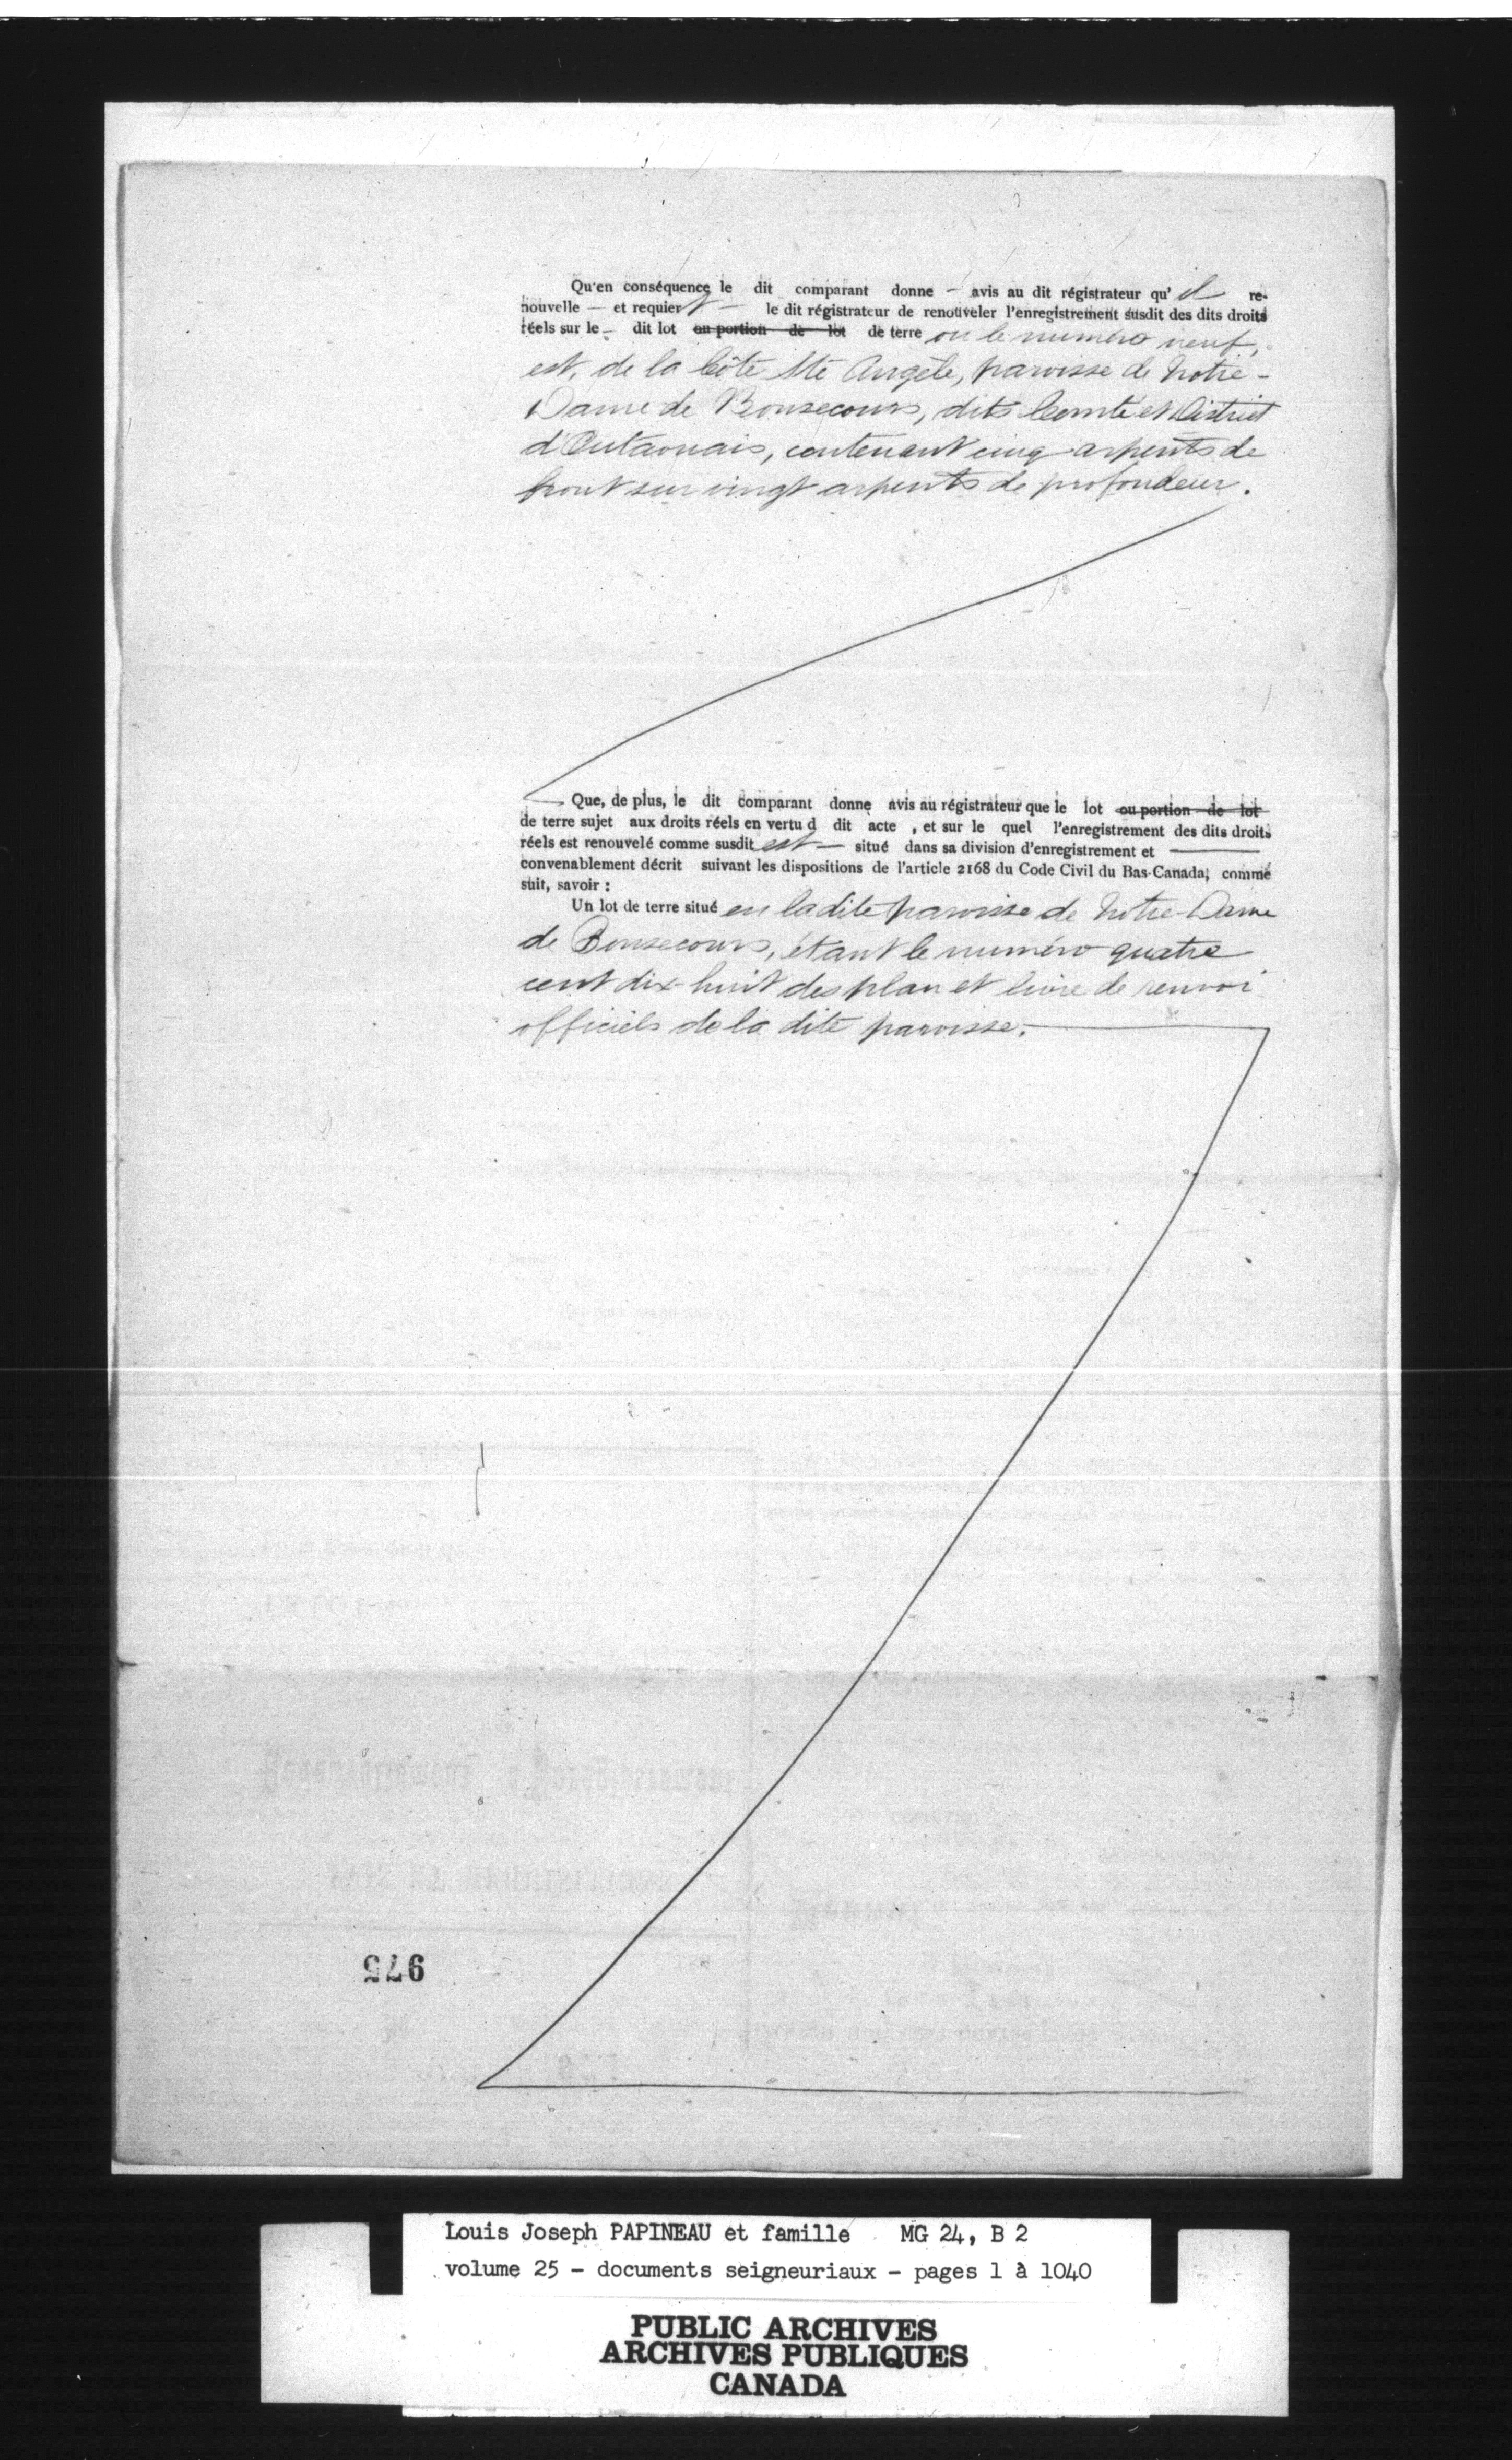 Qu'en conséquence le dit comparant donne – avis au dit régistrateur qu' il re-
nouvelle — et requiert — le dit régistrateur de renouveler l'enregistrement susdit des dits droits
réels sur le – dit lot ou portion de lot de terre ou le numéro neuf,
est, de la Côte Ste Angèle, paroisse de Notre-
Dame de Bonsecours, dits Comté et District
d'Outaouais, contenant cinq arpents de
front sur vingt arpents de profondeur.
Que, de plus, le dit comparant donne avis au régistrateur que le lot ou portion de lot
de terre sujet aux droits réels en vertu d dit acte , et sur le quel l'enregistrement des dits droits
réels est renouvelé comme susdit est — situé dans sa division d'enregistrement et ———
convenablement décrit suivant les dispositions de l'article 2168 du Code Civil du Bas-Canada, comme
suit, savoir :
Un lot de terre situé en la dite paroisse de Notre-Dame
de Bonsecours, étant le numéro quatre
cent dix-huit des plan et livre de renvoi
officiels de la dite paroisse.
975
Louis Joseph PAPINEAU et famille MG 24, B 2
volume 25 – documents seigneuriaux – pages 1 à 1040
PUBLIC ARCHIVES
ARCHIVES PUBLIQUES
CANADA